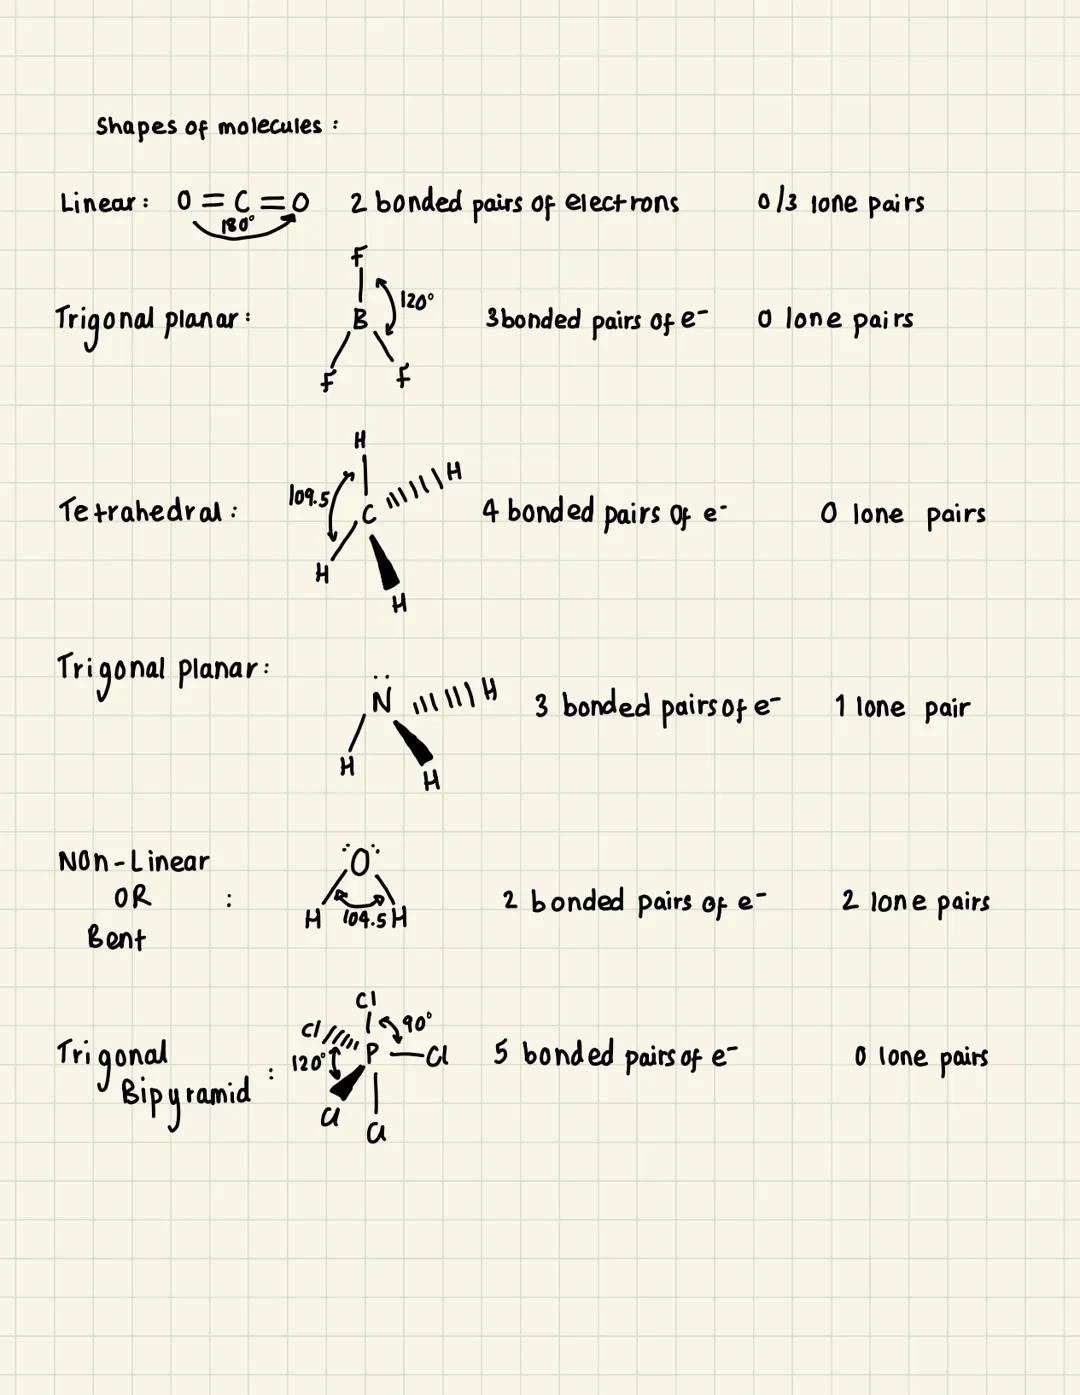 Shapes of molecules :
Linear: O = C = O 2 bonded pairs of electrons 0/3 lone pairs
180°
F
120°
Trigonal planar: B 3 bonded pairs of e⁻ 0 lone pairs
F F
H
109.5 H
Tetrahedral: C 4 bonded pairs of e⁻ 0 lone pairs
H
H
Trigonal planar:
N H 3 bonded pairs of e⁻ 1 lone pair
H
H
Non-Linear
O
OR : 2 bonded pairs of e⁻ 2 lone pairs
H 104.5 H
Bent
Cl
Cl 90°
Trigonal P Cl 5 bonded pairs of e⁻ 0 lone pairs
120°
Bipyramid :
Cl
Cl